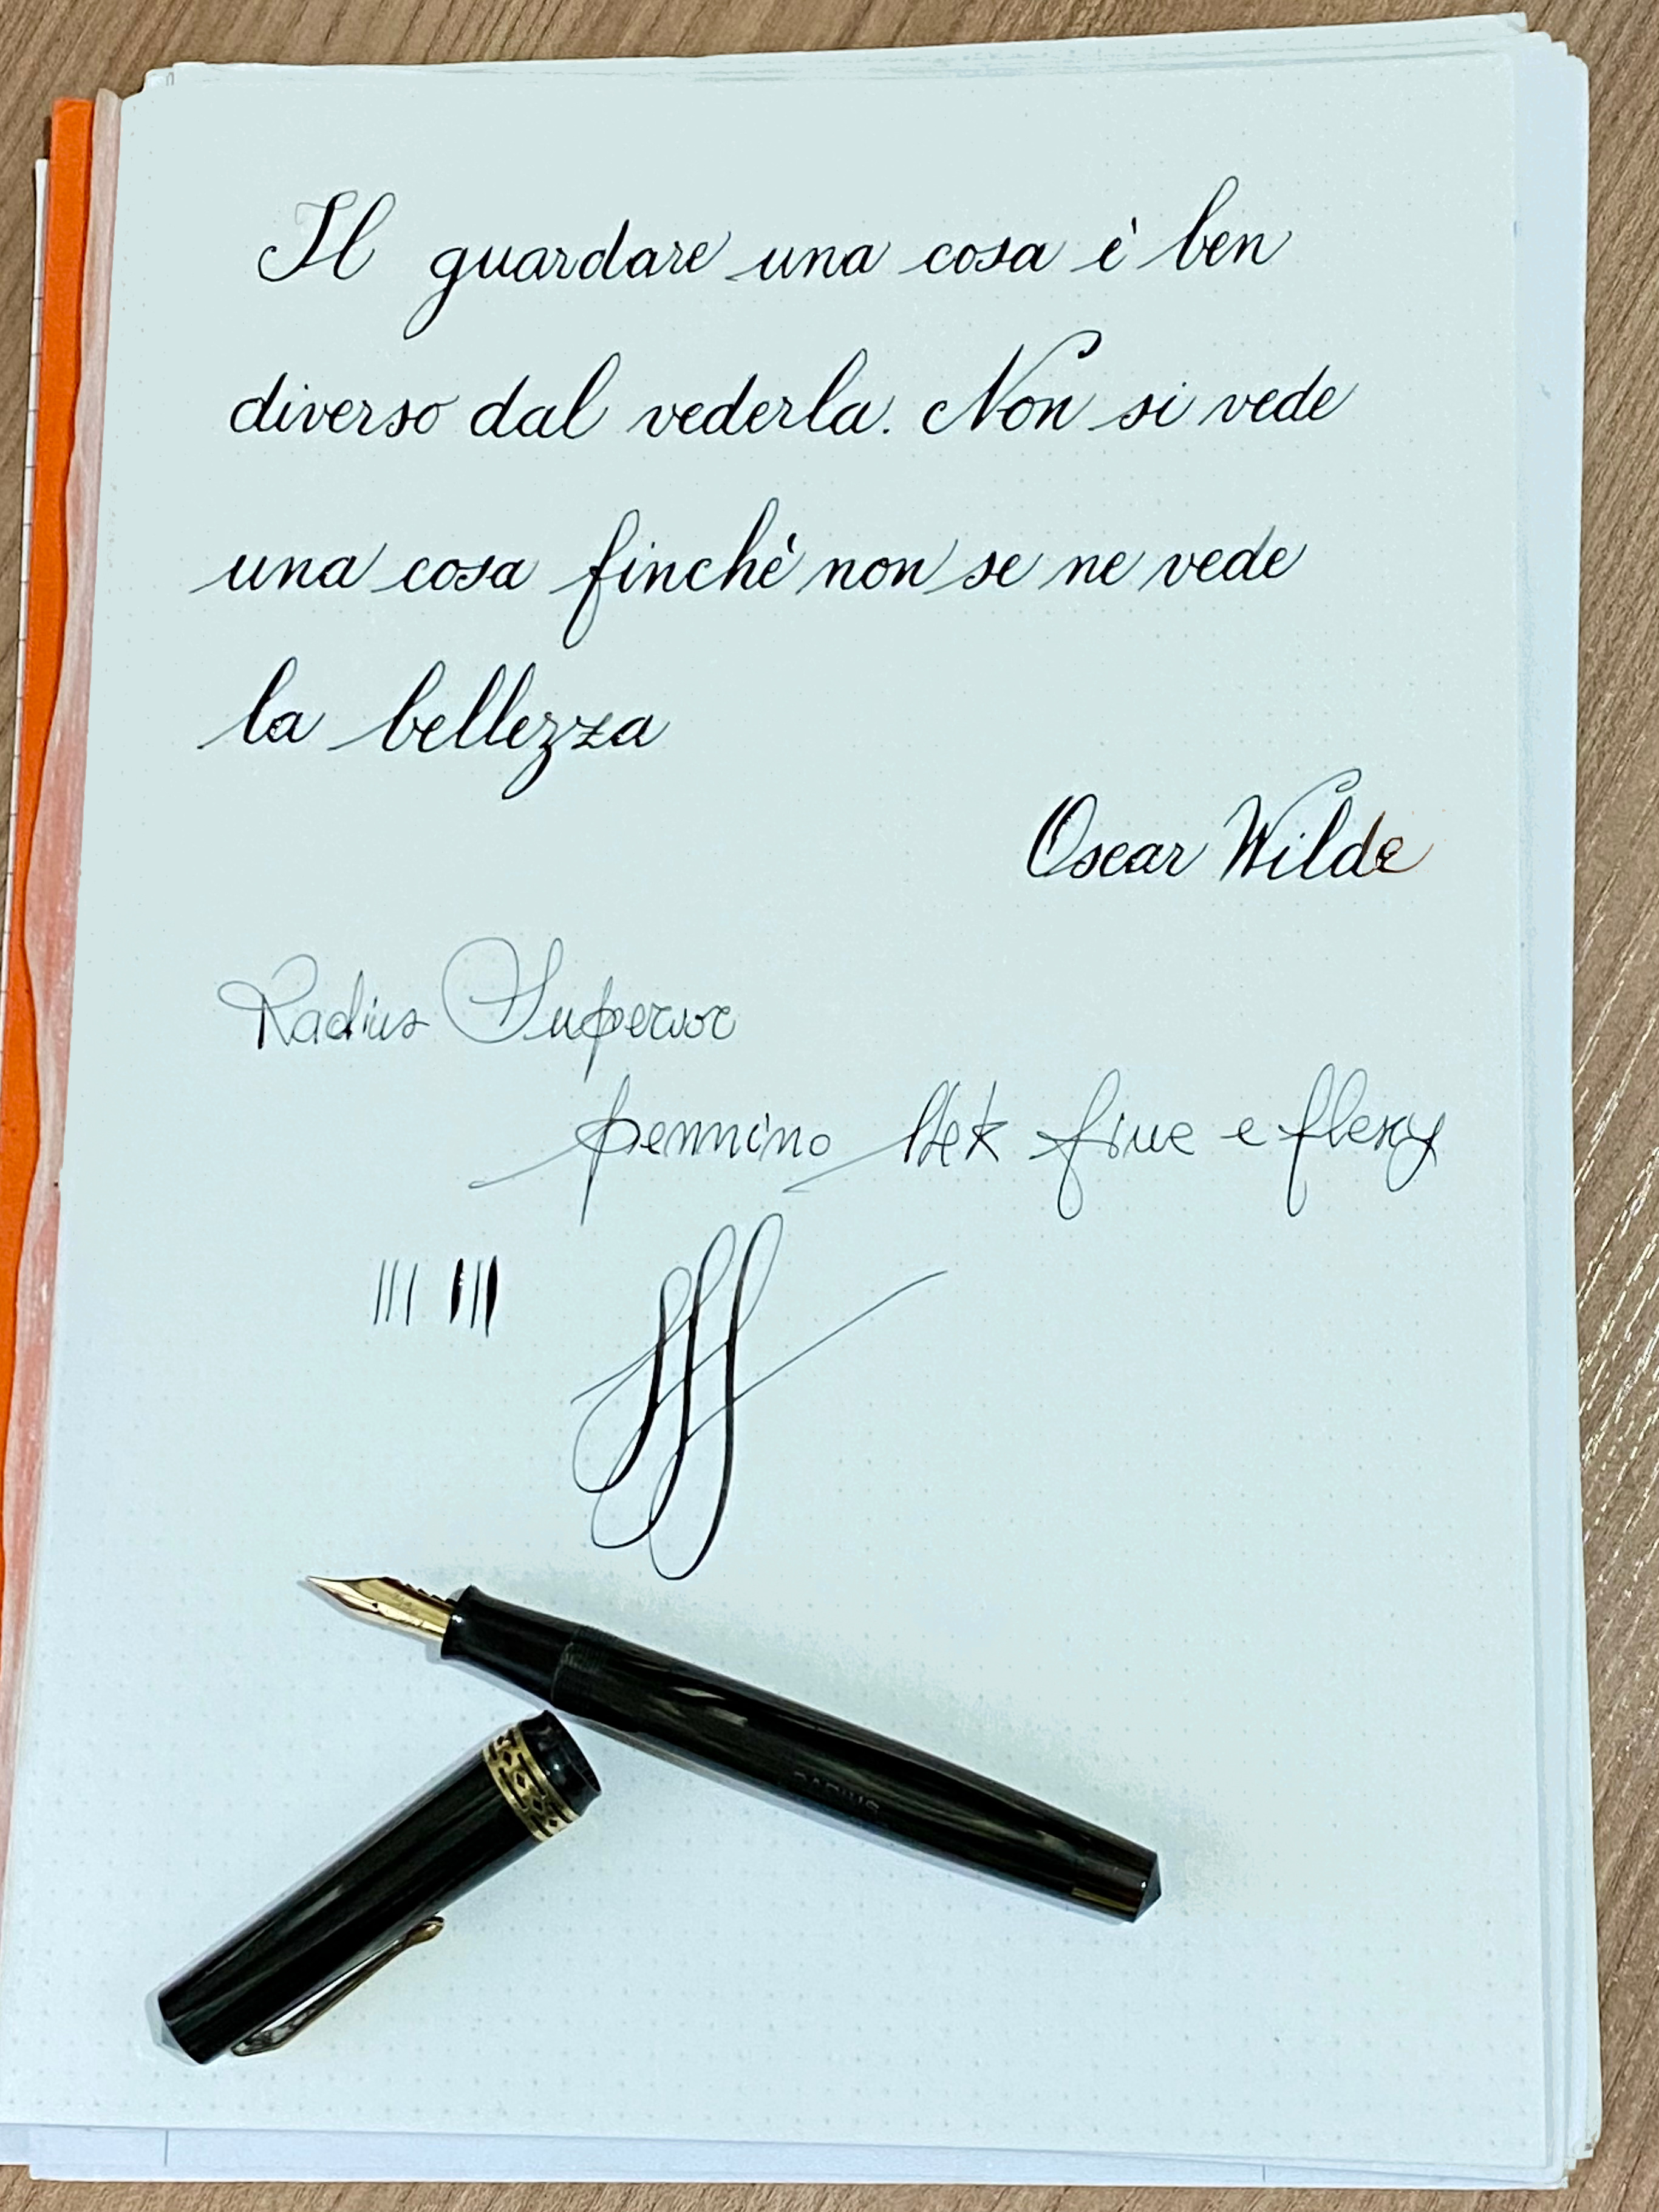 Il guardare una cosa è ben
diverso dal vederla. Non si vede
una cosa finchè non se ne vede
la bellezza
Oscar Wilde
Radius Superior
pennino fine e flexy
RADIUS